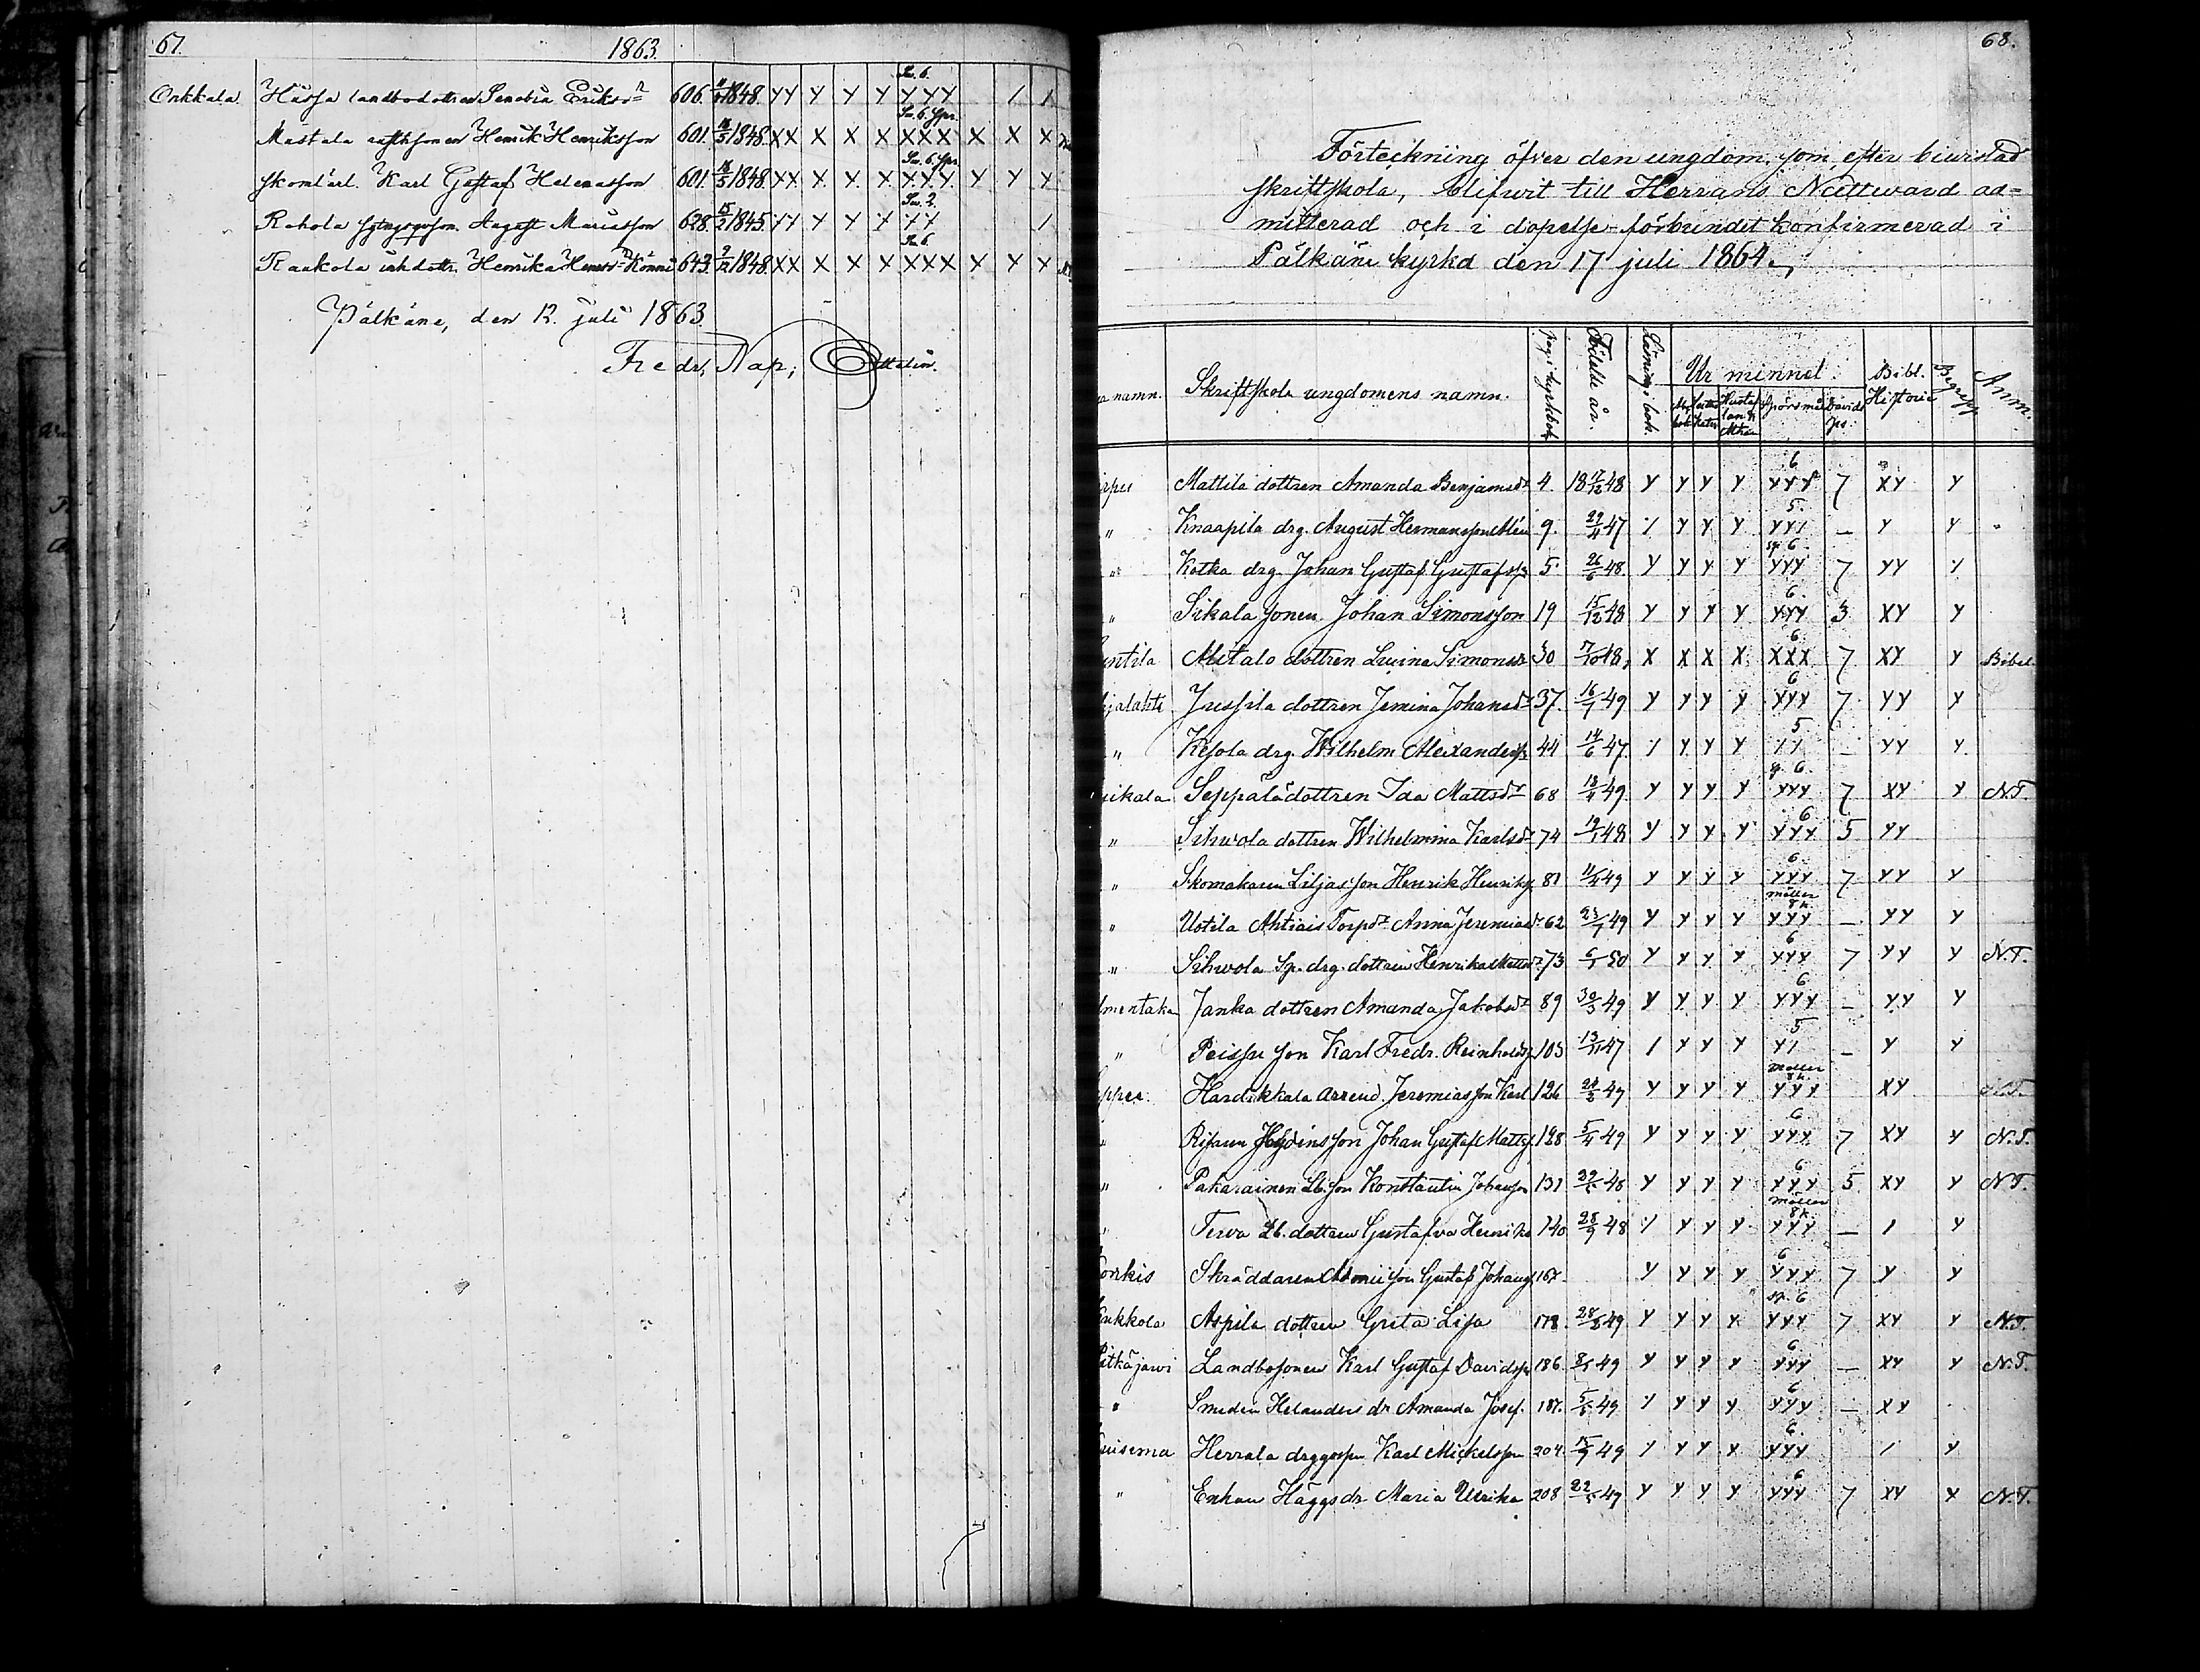 67.
1863.
Onkkala Hussa landbodottren Serafia Eriksdr 606. 1848. YY Y Y Y YYY / /
Sv. 6.
Mattala Henrik Henriksson 601. 18/5 1848. XX X X X XXX X X X
Sv. 6. Spr.
skomlärl. Karl Gustaf Helenasson 601. 18/5 1848. XX X X X YYY Y Y Y
Sv. 2.
Rahola August Mariasson 628. 15/2 1845. YY Y Y Y YY /
Sv. 6
Raukola inhdottr. Henrika Könni 643. 9/12 1848. XX X X X XXX X Y Y
Pälkäne, den 12. juli 1863.
Fredr. Nap.
68.
Förteckning öfver den ungdom, som efter biwistad
skriftskola, blifwit till Herrans Nattward ad=
mitterad och i dopelse-förbundet konfirmerad i
Pälkäne kyrka den 17 juli 1864.
namn. Skriftskola ungdomens namn. pag. i kyrkbok. Födelse år. Läsning i bok. Ur minnet. Bibl. Historie Begrepp Anm.
Hustaf lan & Athan Spörsmål Davids ps.
Mattila dottren Amanda Benjamsdr 4. 18 17/12 48 Y Y Y Y 6 YYY 7 XY Y
" Knaapila drg. August Hermansson 9. 29/4 47 / Y Y Y 5. YY/ — Y Y
" Kotka drg. Johan Gustaf Gustafss 5. 26/6 48 Y Y Y Y sp. 6. YYY 7 YY /
" Sikala sonen Johan Simonsson 19 15/12 48 Y Y Y Y 6. YYY 3 XY Y
Alitalo dottren Lovina Simonsdr 30 17/10 48, X X X X 6. XXX 7 XY Y Bibel
Jussila dottren Jemina Johansdr 37. 16/7 49 Y Y Y Y 6 YYY 7 YY Y
" Kesola drg Wilhelm Alexanderss 44 14/6 47. / Y Y Y 5 // — YY Y
Seppälä dottren Ida Mattsdr 68 49. Y Y Y Y sp. 6. YYY 7 XY Y N.T.
" Sihvola dottren Wilhelmina Karlsdr 74 19/1 48 Y Y Y Y 6 YYY 5 YY
" Skomakaren Liljas son Henrik Henriks 81 49 Y Y Y Y 6. YYY 7 YY Y
" Uotila Ahtiais Torpdr Anna Jeremiasdr 62 23/7 49 Y Y Y Y möller 8 k. YYY — YY Y
" Sihvola Sp. drg. dottren Henrika 73 6/1 50 Y Y Y Y 6 YYY 7 YY Y N.T.
Janka dottren Amanda Jakobsdr 89 30/3 49 Y Y Y Y 6 YYY — YY Y
" Peissu son Karl Fredr. Reinholdss 103 13/11 47 / Y Y Y 5 Y/ — Y Y
Hardikkala arrend. Jeremiasson Karl 126 24/2 47 Y Y Y Y möller 8 k. YYY XY N.T.
" son Johan Gustaf Mattss. 128 5/4 49 Y Y Y Y 6 YYY 7 XY Y N.T.
" Pakarainen Lb. son Konstantin Johansson 131 48 Y Y Y Y 6 YYY 5 XY Y N.T.
" Terva Lb. dottren Gustafva Henriks 140 28/9 48 / Y Y Y möller 8 k. YYY — / Y
Skräddaren son Gustaf Johanss 167. Y Y Y Y 6 YYY 7 Y Y
Aspila dottren Greta Lisa 178. 28/8 49 Y Y Y X sp. 6 YYY 7 XY Y N.T.
Pitkäjärvi Landbosonen Karl Gustaf Davidss 186. 49 Y Y Y Y 6 YYY — XY Y N.T.
" Smeden Helanders dr Amanda Josef. 187. 49 / Y Y Y 6 YYY — XY
Herrala Karl Mickelsson 204. 49 / Y Y X 6. YYY / Y
" Enkan Häggs dr Maria Ulrika 208 49 Y Y Y Y 6 YYY 7 XY X N.T.